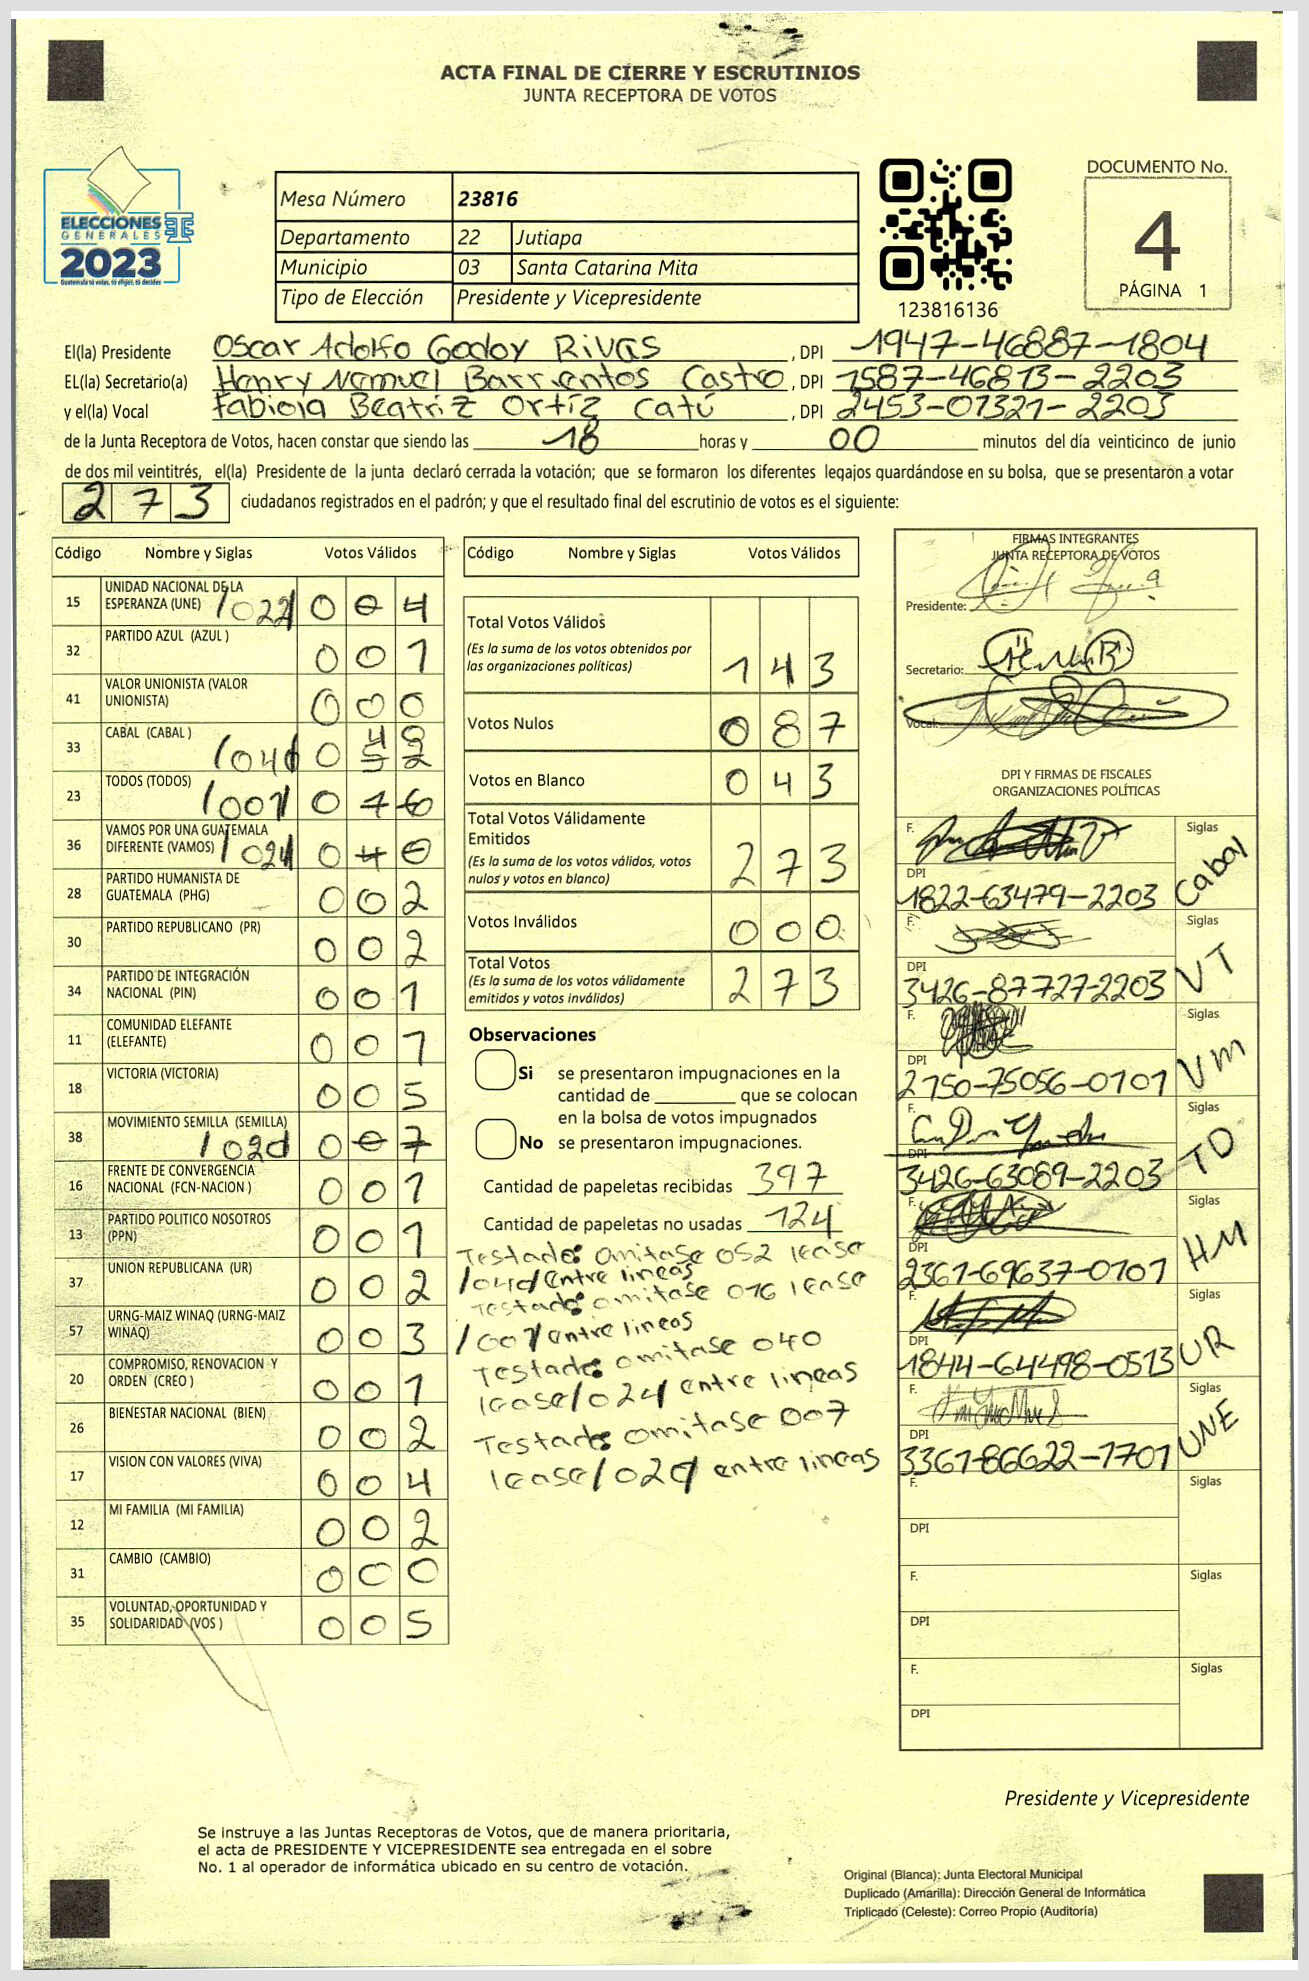 ACTA FINAL DE CIERRE Y ESCRUTINIOS
JUNTA RECEPTORA DE VOTOS
ELECCIONES
GENERALES
2023
Guatemala tú votas, tú eliges, tú decides
Mesa Número 23816
Departamento 22 Jutiapa
Municipio 03 Santa Catarina Mita
Tipo de Elección Presidente y Vicepresidente
123816136
DOCUMENTO No.
4
PÁGINA 1
El(la) Presidente Oscar Adolfo Godoy Rivas, DPI 1947-46887-1804
EL(la) Secretario(a) Henry Nemuel Barrientos Castro, DPI 1587-46813-2203
y el(la) Vocal Fabiola Beatriz Ortíz Catú, DPI 2453-07321-2203
de la Junta Receptora de Votos, hacen constar que siendo las 18 horas y 00 minutos del día veinticinco de junio
de dos mil veintitrés, el(la) Presidente de la junta declaró cerrada la votación; que se formaron los diferentes legajos guardándose en su bolsa, que se presentaron a votar
273 ciudadanos registrados en el padrón; y que el resultado final del escrutinio de votos es el siguiente:
Código Nombre y Siglas Votos Válidos
15 UNIDAD NACIONAL DE LA
ESPERANZA (UNE) /022/ 004
32 PARTIDO AZUL (AZUL ) 001
41 VALOR UNIONISTA (VALOR
UNIONISTA) 000
33 CABAL (CABAL ) 0
23 TODOS (TODOS) /007/ 016
36 VAMOS POR UNA GUATEMALA
DIFERENTE (VAMOS) /024/ 040
28 PARTIDO HUMANISTA DE
GUATEMALA (PHG) 002
30 PARTIDO REPUBLICANO (PR) 002
34 PARTIDO DE INTEGRACIÓN
NACIONAL (PIN) 001
11 COMUNIDAD ELEFANTE
(ELEFANTE) 001
18 VICTORIA (VICTORIA) 005
38 MOVIMIENTO SEMILLA (SEMILLA) 007
16 FRENTE DE CONVERGENCIA
NACIONAL (FCN-NACION ) 001
13 PARTIDO POLITICO NOSOTROS
(PPN) 001
37 UNION REPUBLICANA (UR) 002
57 URNG-MAIZ WINAQ (URNG-MAIZ
WINAQ) 003
20 COMPROMISO, RENOVACION Y
ORDEN (CREO ) 001
26 BIENESTAR NACIONAL (BIEN) 002
17 VISION CON VALORES (VIVA) 004
12 MI FAMILIA (MI FAMILIA) 002
31 CAMBIO (CAMBIO) 000
35 VOLUNTAD, OPORTUNIDAD Y
SOLIDARIDAD (VOS ) 005
Código Nombre y Siglas Votos Válidos
Total Votos Válidos
(Es la suma de los votos obtenidos por
las organizaciones políticas) 143
Votos Nulos 087
Votos en Blanco 043
Total Votos Válidamente
Emitidos
(Es la suma de los votos válidos, votos
nulos y votos en blanco) 273
Votos Inválidos 000
Total Votos
(Es la suma de los votos válidamente
emitidos y votos inválidos) 273
Observaciones
Si se presentaron impugnaciones en la
cantidad de ________ que se colocan
en la bolsa de votos impugnados
No se presentaron impugnaciones.
Cantidad de papeletas recibidas 397
Cantidad de papeletas no usadas 124
Testado: omitase 052 lease
entre lineas
Testado: omitase 016 lease
/007/ entre lineas
Testado: omitase 040
lease /024/ entre lineas
Testado: omitase 007
lease entre lineas
FIRMAS INTEGRANTES
JUNTA RECEPTORA DE VOTOS
Presidente:
Secretario:
Vocal:
DPI Y FIRMAS DE FISCALES
ORGANIZACIONES POLÍTICAS
F. Siglas
DPI
1822-63479-2203 Cabal
F. Siglas
DPI
3426-87727-2203 VT
F. Siglas
DPI
2750-75056-0101 VM
F. Siglas
DPI
3426-63089-2203 TD
F. Siglas
DPI
2361-69637-0101 HM
F. Siglas
DPI
1844-64498-0513 UR
F. Siglas
DPI
3361-86622-1701 UNE
F. Siglas
DPI
F. Siglas
DPI
F. Siglas
DPI
Presidente y Vicepresidente
Se instruye a las Juntas Receptoras de Votos, que de manera prioritaria,
el acta de PRESIDENTE Y VICEPRESIDENTE sea entregada en el sobre
No. 1 al operador de informática ubicado en su centro de votación.
Original (Blanca): Junta Electoral Municipal
Duplicado (Amarilla): Dirección General de Informática
Triplicado (Celeste): Correo Propio (Auditoría)